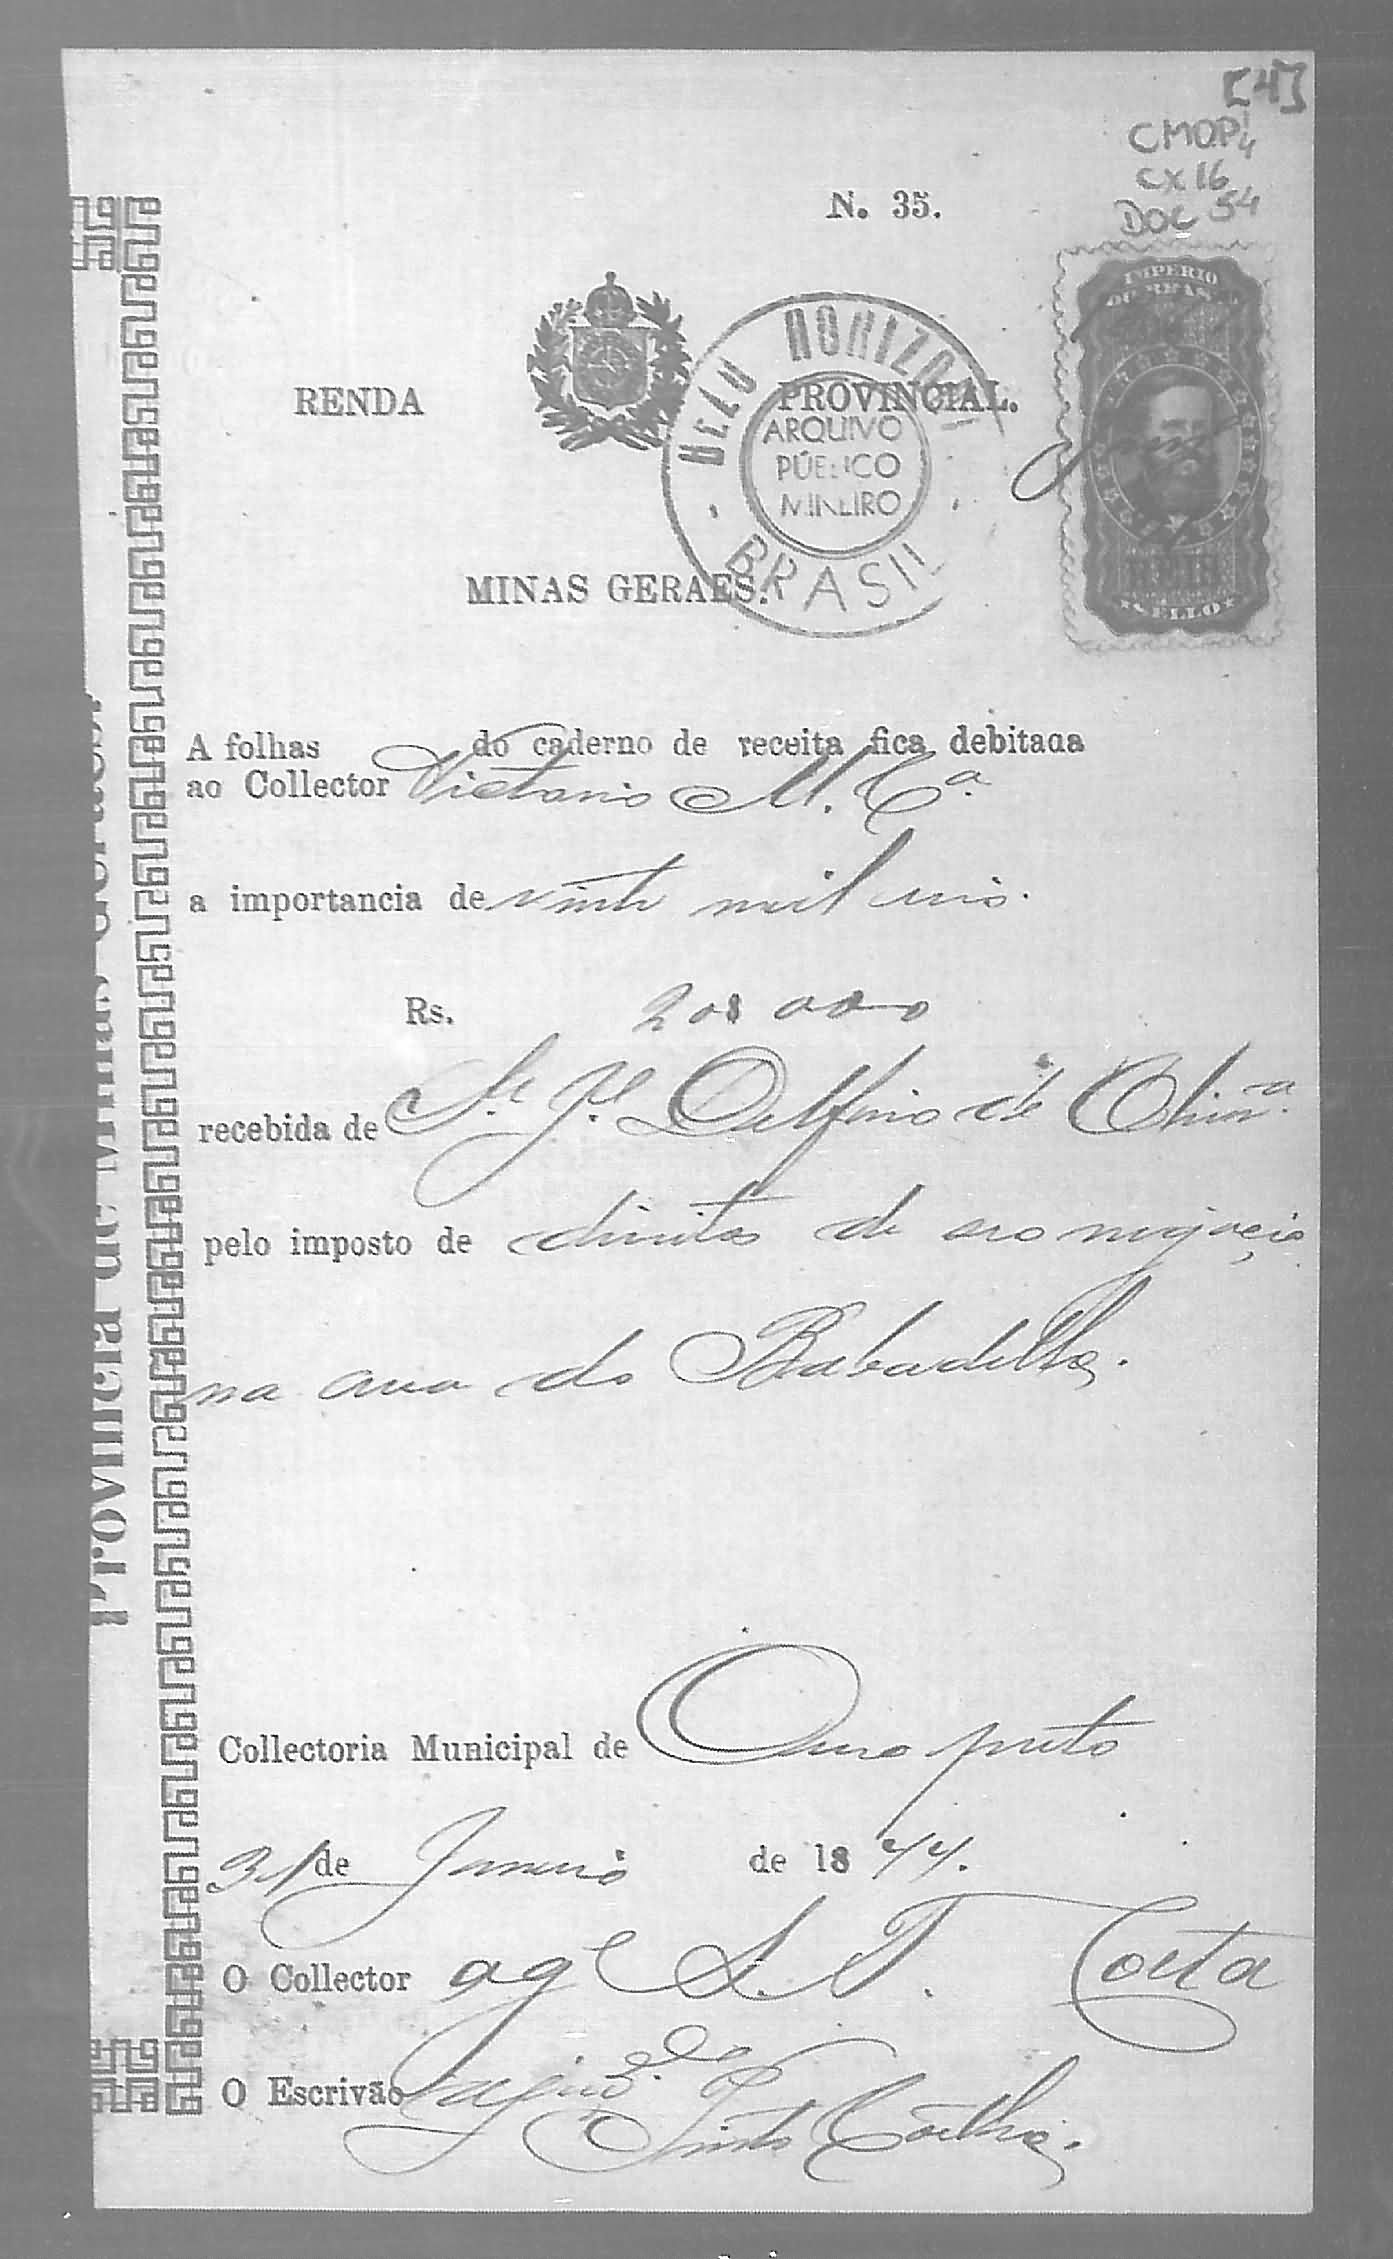 [4]
CMOP 1/4
CX 16
DOC 54
N. 35.
IMPERIO
DO BRASIL
RENDA PROVINCIAL.
BELO HORIZON
ARQUIVO
PÚBLICO
MINEIRO
BRASIL
REIS
SELLO
MINAS GERAES.
A folhas do caderno de receita fica debitada
ao Collector Victorio M. Cª.
a importancia de vinte mil reis.
Rs. 20$000
recebida de Delfino de Olivrª.
pelo imposto de direitos de seo negocio
na rua do Bobadella.
Collectoria Municipal de Ouro preto
31 de Janeiro de 1877.
O Collector S. T. Costa
O Escrivão
Pinto Coelho.
Provincia de Minas Geraes